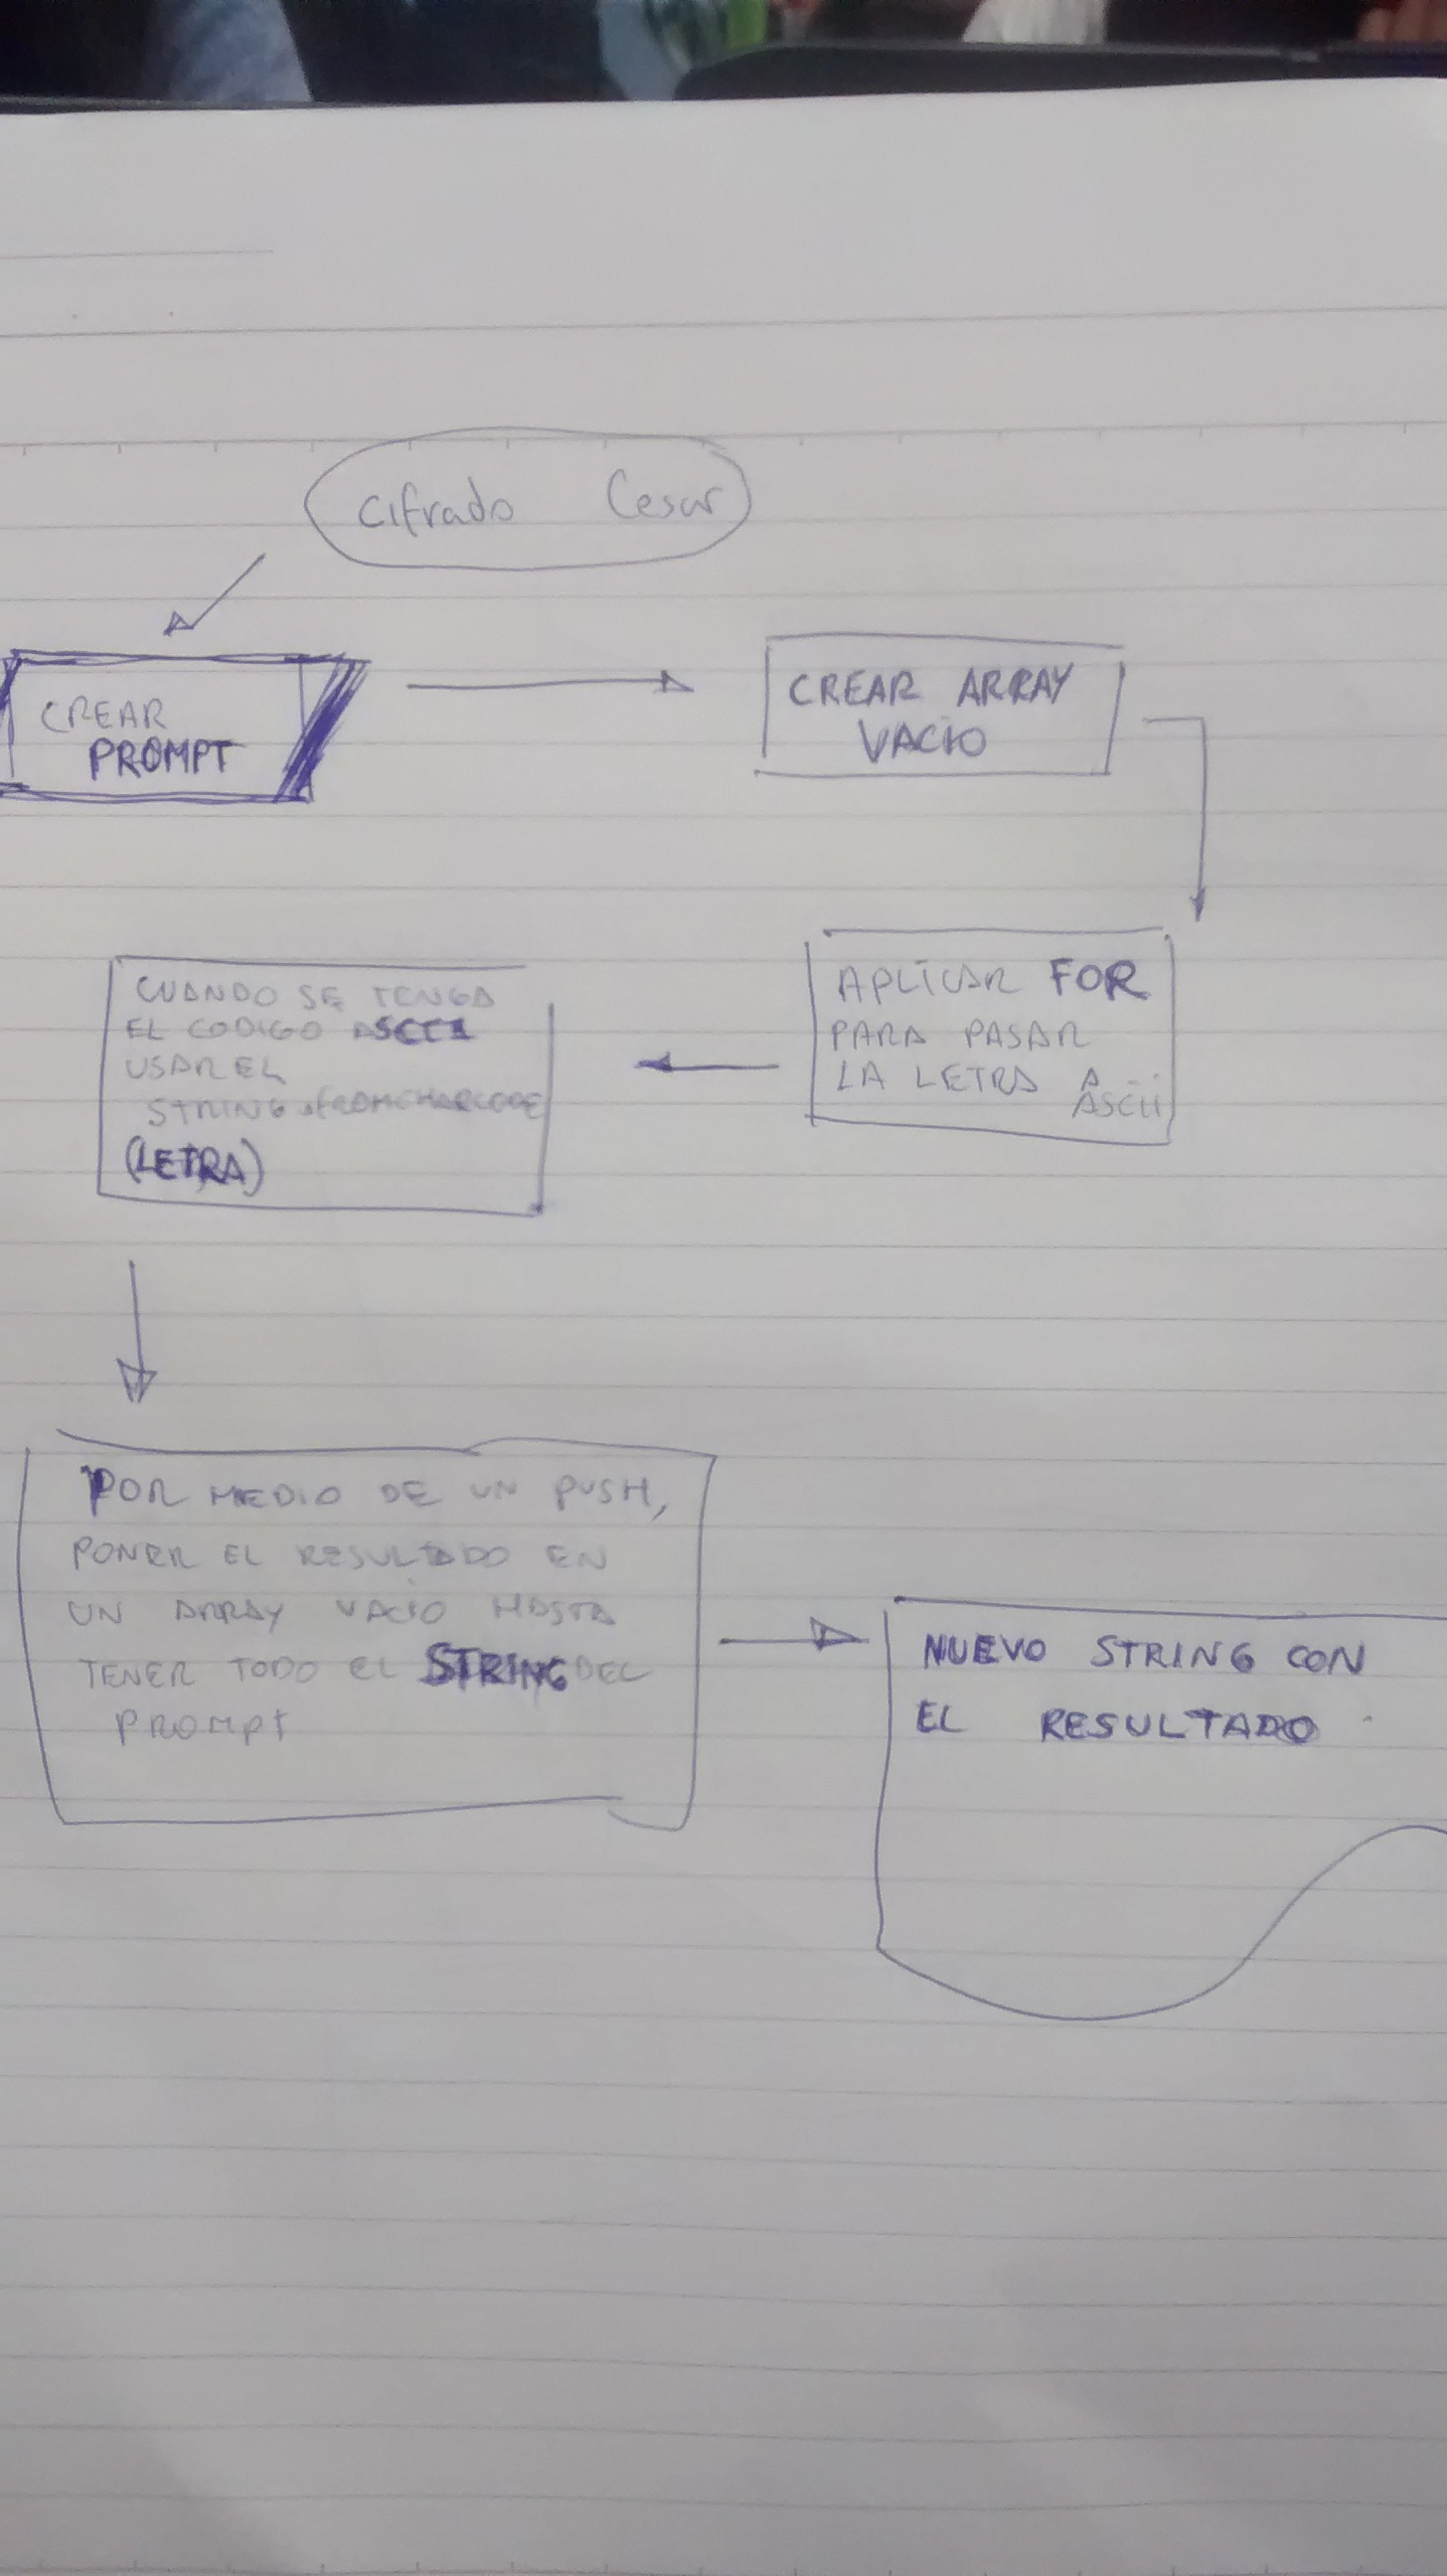 Cifrado Cesar
CREAR
PROMPT
CREAR ARRAY
VACIO
APLICAR FOR
PARA PASAR
LA LETRA A
ASCII
CUANDO SE TENGA
EL CODIGO ASCCI
USAR EL
STRING.FROMCHARCODE
(LETRA)
POR MEDIO DE UN PUSH,
PONER EL RESULTADO EN
UN ARRAY VACIO HASTA
TENER TODO EL STRING DEL
PROMPT
NUEVO STRING CON
EL RESULTADO